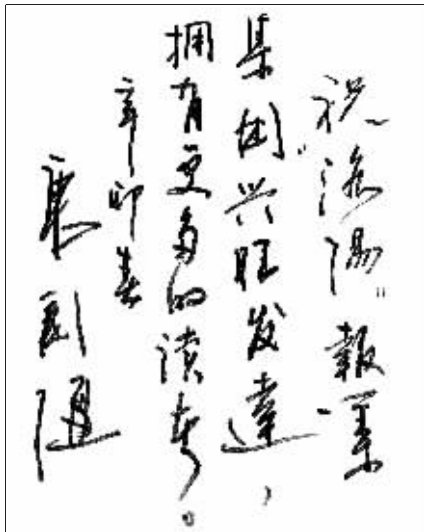 祝陽報業
集团兴旺发達，
拥有更多的读者。
辛卯春